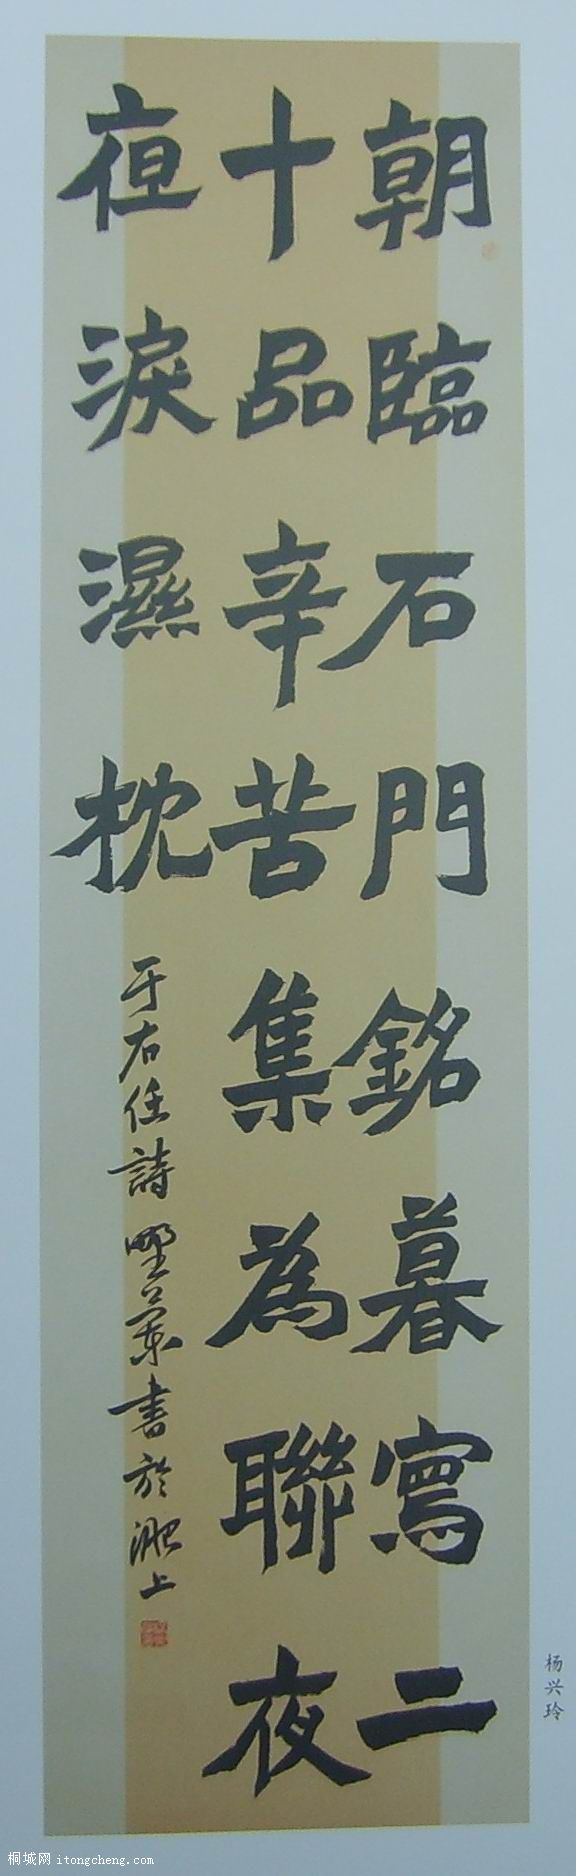 朝臨石門銘暮寫二
十品辛苦集為聯夜
夜淚濕枕
于右任詩 墅蘭書於淝上
杨兴玲
桐城网 itongcheng.com